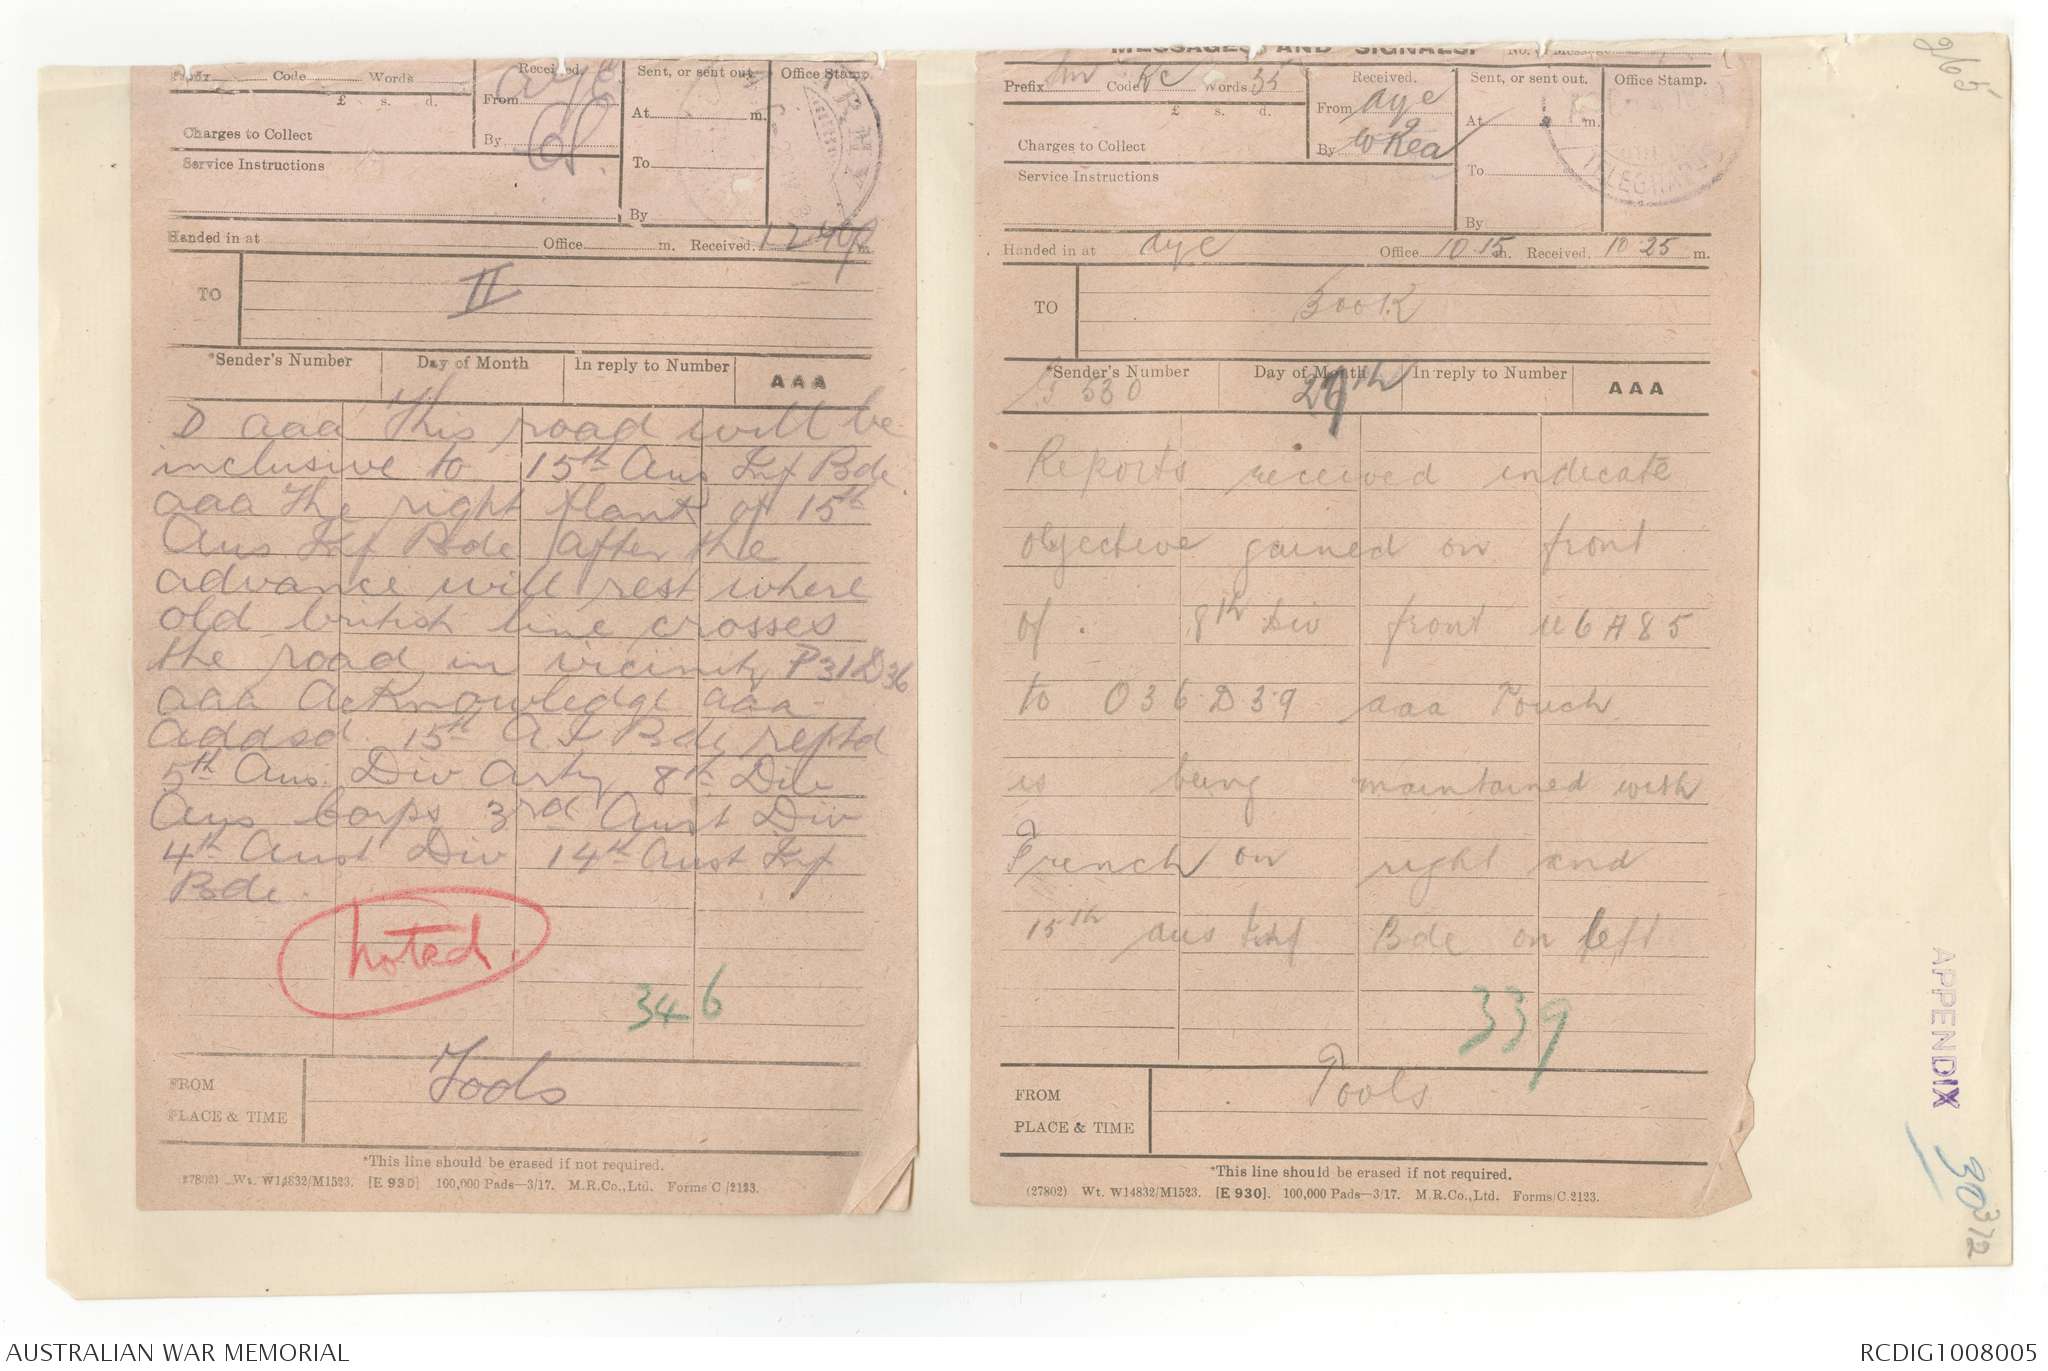 Prefix Code Words
£ s. d.
Charges to Collect
Service Instructions
Received.
From aye
By
Sent, or sent out.
At m.
To
By
Office Stamp.
Handed in at Office m. Received. 12 40 m.
TO II
*Sender's Number Day of Month In reply to Number AAA
D aaa This road will be
inclusive to 15th Aus Inf Bde
aaa The right flank of 15th
Aus Inf Bde after the
advance will rest where
old british line crosses
the road in vicinity P31D36
aaa Acknowledge aaa
addsd 15th A I Bde reptd
5th Aus Div arty 8th Div
Aus Corps 3rd Aust Div
4th Aust Div 14th Aust Inf
Bde.
noted.
346
FROM
PLACE & TIME
Tools
*This line should be erased if not required.
(27802) Wt. W14832/M1523. [E 930] 100,000 Pads—3/17. M.R.Co., Ltd. Forms C/2123.
MESSAGES AND SIGNALS.
Prefix Sm Code KC Words 35
£ s. d.
Charges to Collect
Service Instructions
Received.
From aye
By
Sent, or sent out.
At m.
To
By
Office Stamp.
TELEGRAPHS
Handed in at aye Office 10.15 m. Received. 10 25 m.
TO Book
*Sender's Number Day of Month In reply to Number AAA
G 530 27th
Reports received indicate
objective gained on front
of 8th Div front U6A85
to O36D39 aaa Touch
is being maintained with
French on right and
15th aus Inf Bde on left
339
FROM
PLACE & TIME
Tools
*This line should be erased if not required.
(27802) Wt. W14832/M1523. [E 930]. 100,000 Pads—3/17. M.R.Co., Ltd. Forms/C.2123.
265
APPENDIX 30
312
AUSTRALIAN WAR MEMORIAL
RCDIG1008005